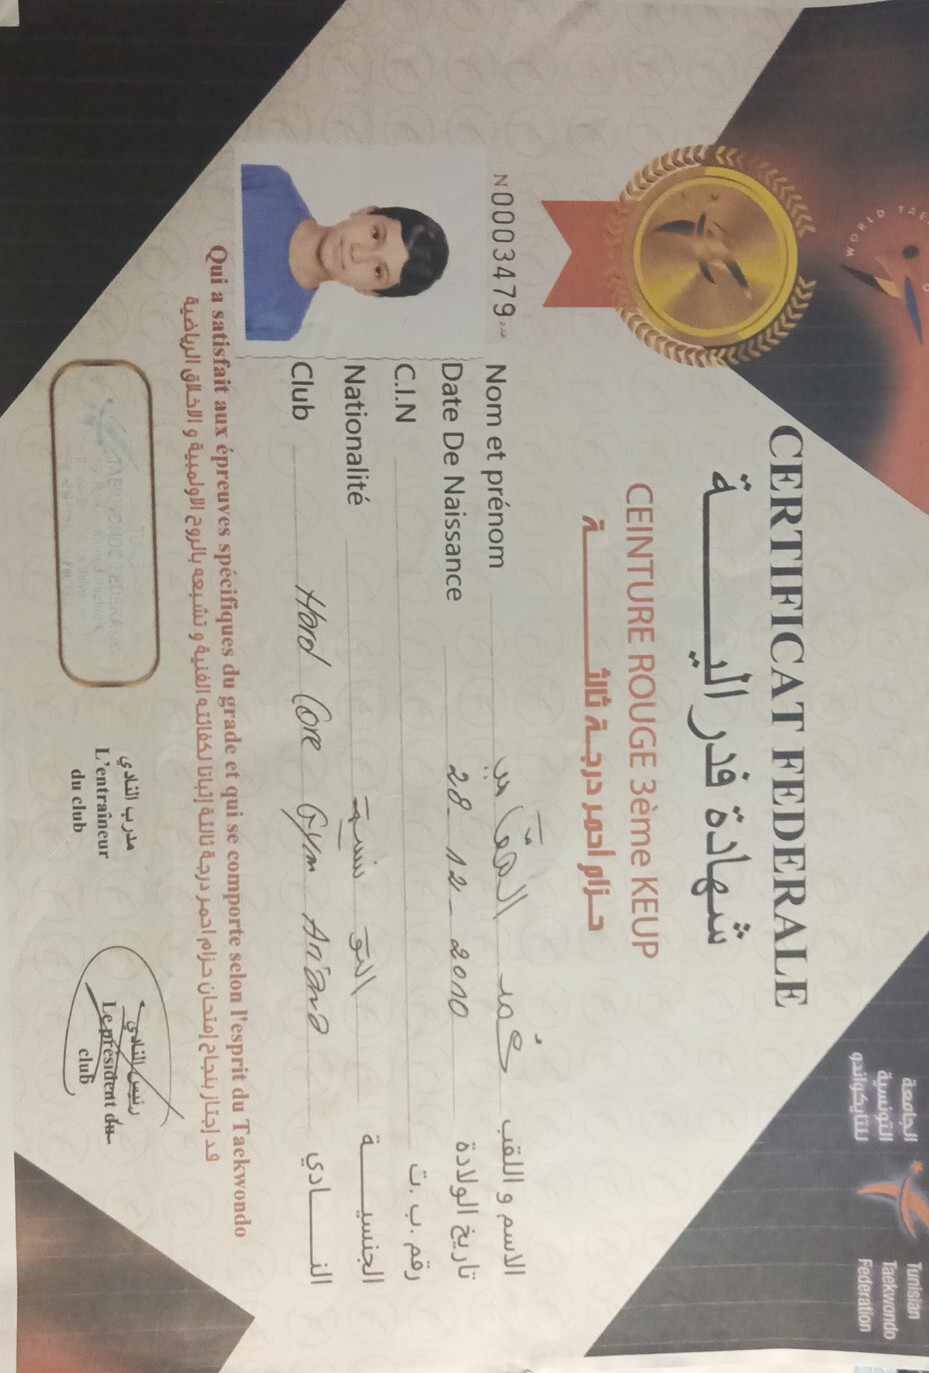 WORLD TAE
الجامعة
التونسية
للتايكواندو
Tunisian
Taekwondo
Federation
CERTIFICAT FEDERALE
شهادة فدراليـــــة
CEINTURE ROUGE 3ème KEUP
حزام احمر درجة ثالثـــــة
N00003479 عدد
Nom et prénom الاسم و اللقب
Date De Naissance 28-12-2010 تاريخ الولادة
C.I.N رقم .ب .ت
Nationalité التونسية الجنسيـــة
Club Hard Core Gym Ariana النـــادي
Qui a satisfait aux épreuves spécifiques du grade et qui se comporte selon l'esprit du Taekwondo
قد إجتاز بنجاح إمتحان حزام احمر درجة ثالثة إثباتا لكفائته الفنية و تشبعه بالروح الاولمبية و الاخلاق الرياضية
مدرب النادي
L'entraîneur
du club
رئيس النادي
Le président du
club